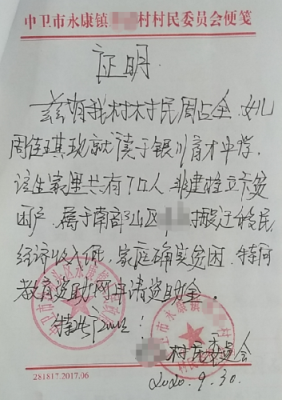 中卫市永康镇村村民委员会便笺
证明
兹有我村村民周占全 女儿
周佳琪现就读于银川育才中学,
该生家里共有7口人 非建档立卡贫
困户,属于南部山区搬迁移民
经济收入低,家庭确实贫困,特向
教育资助网申请资助金。
特此证明
村民委员会
2020.9.30.
281817.2017.06